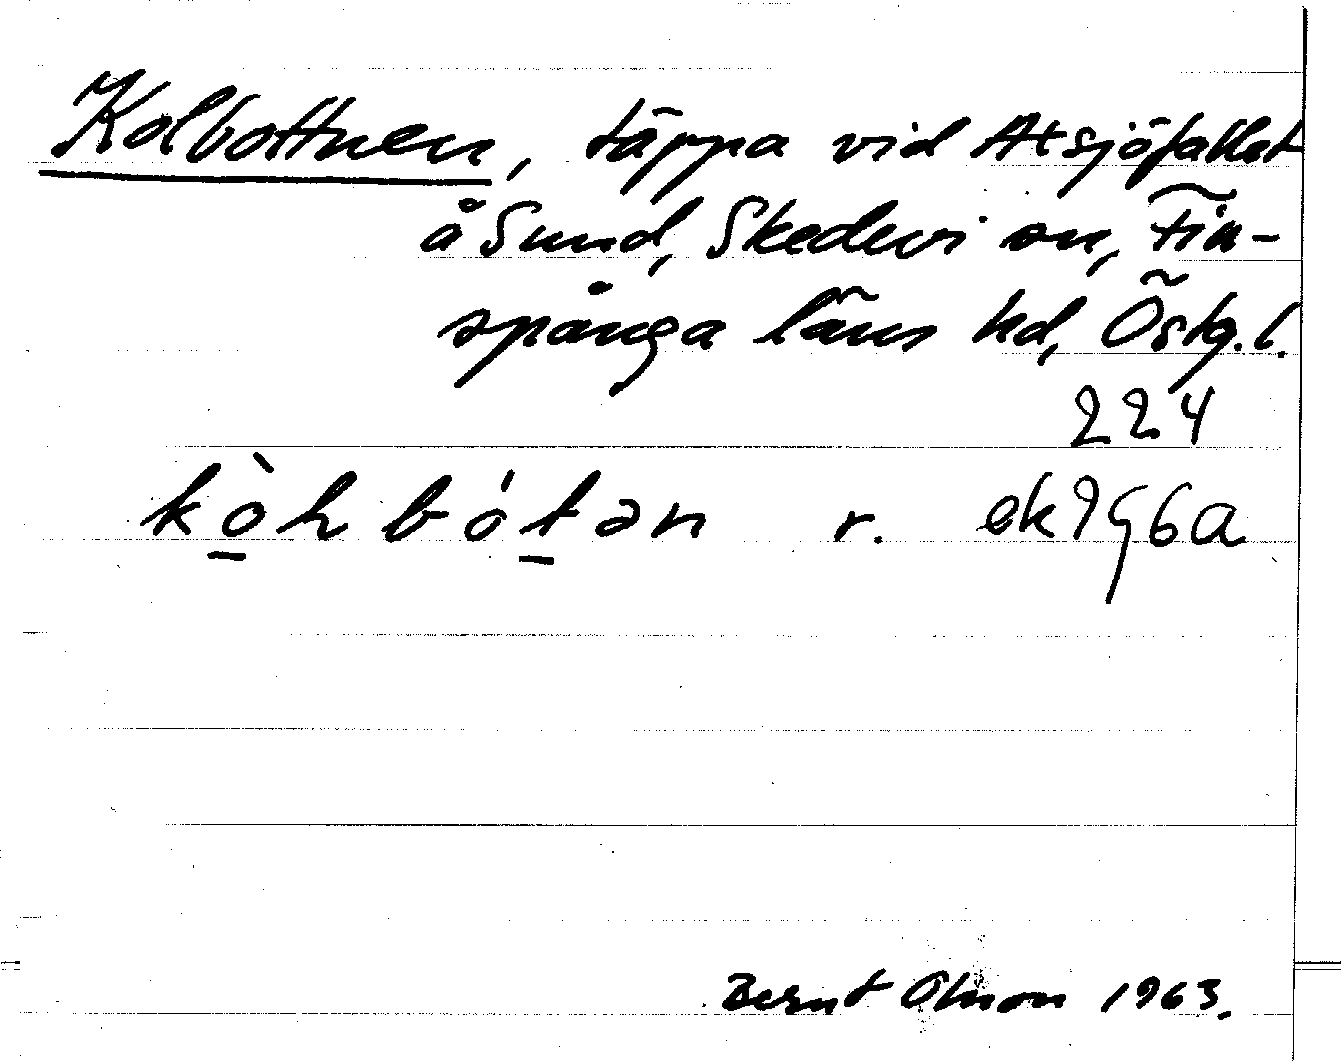 Kolbottnen, täppa vid Atsjöfallet
å Sund, Skedevi sn, Fin-
spånga läns hd, Östg.l.
224
kòhbótən r. ek 956a
Bernt Olsson 1963.